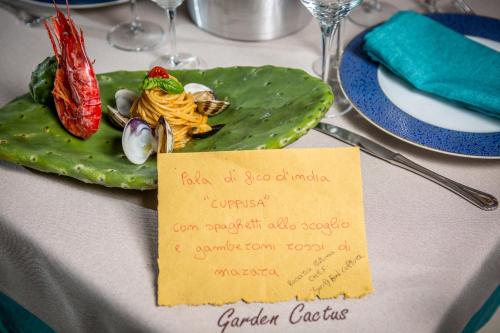 Pala di fico d'india
"CUPPUSA"
com spaghetti allo scoglio
e gamberomi rossi di
mazara
CHEF
Garden Cactus